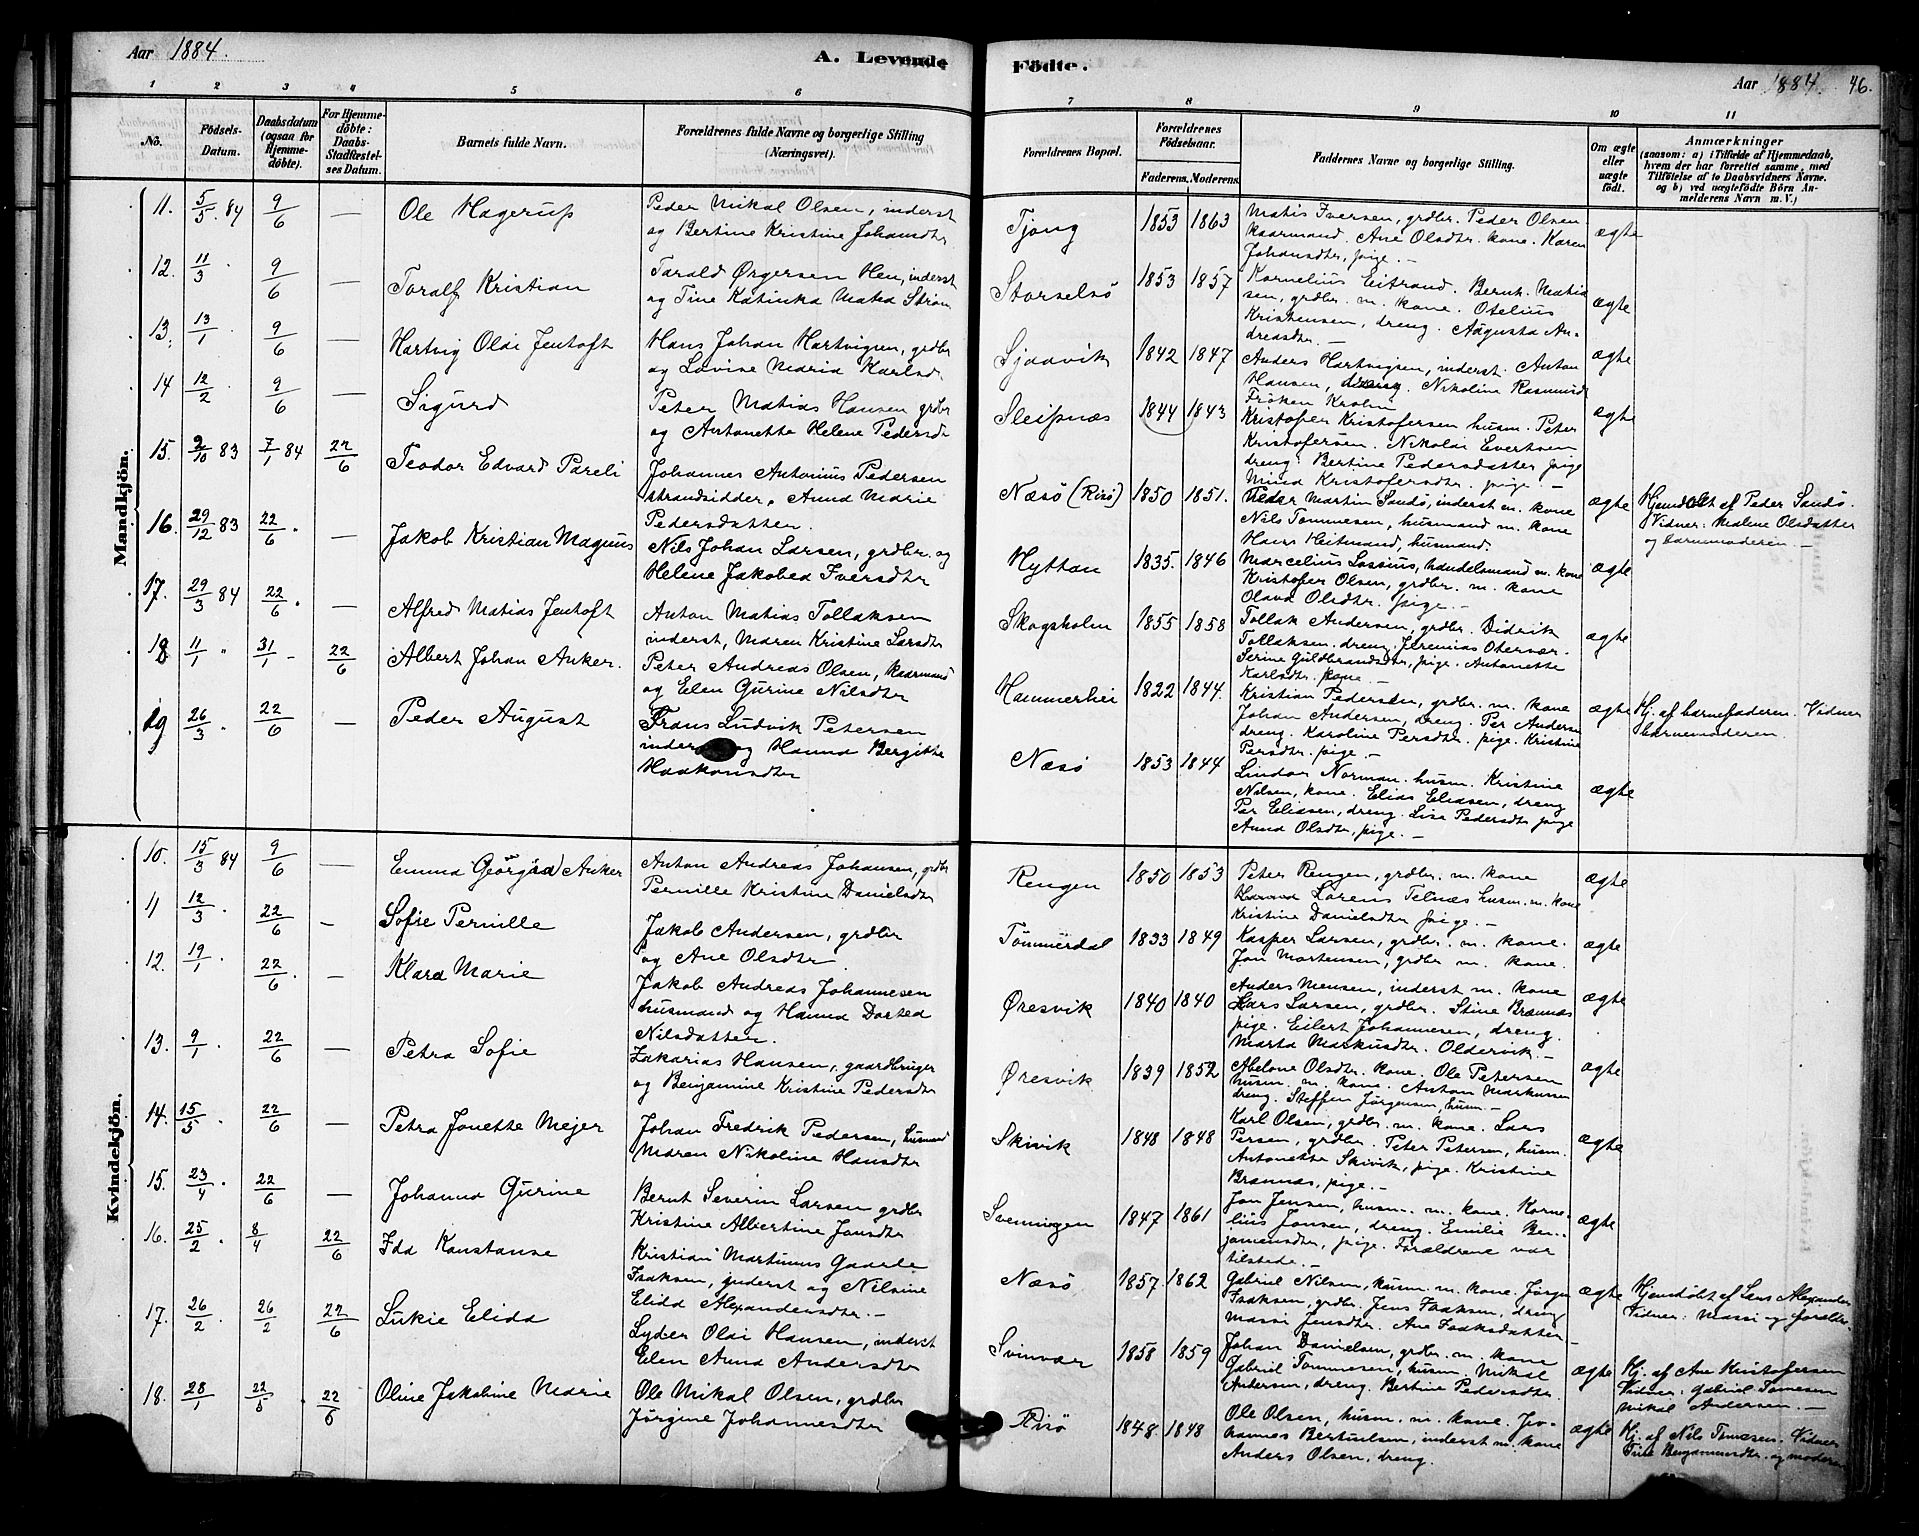 Aar 1884.
A. Levende
Födte.
Aar 1884. 46.
1 2 3 4 5 6 7 8 9 10 11
No.
Födsels-Datum.
Daabsdatum (ogsaa for Hjemmedöbte).
For Hjemmedöbte: Daabs-Stadfæstelses Datum.
Barnets fulde Navn.
Forældrenes fulde Navne og borgerlige Stilling (Næringsvei).
Forældrenes Bopæl.
Forældrenes Födselsaar.
Faderens. Moderens.
Faddernes Navne og borgerlige Stilling.
Om ægte eller uægte födt.
Anmærkninger
(saasom: a) i Tilfælde af Hjemmedaab, hvem der har forrettet samme, med Tilföielse af to Daabsvidners Navne, og b) ved uægtefödte Börn Anmelderens Navn m. V.)
Mandkjön.
11. 5/5. 84 9/6 — Ole Hagerup
Peder Mikal Olsen, inderst
og Bertine Kristine Johansdtr.
Tjong 1853 1863
Matis Iversen, grdbr. Peder Olsen
kaarmand. Ane Olsdtr. kone. Karen
Johansdtr, pige. —
ægte
12. 11/3 . 9/6 — Toralf Kristian
Tarald Ørgersen Hen, inderst
og Tine Katinka Matea Ström
Storselsö 1853 1857
Kornelius Eitrand. Bernt Matia
sen, grdbr. m. kone. Otelius
Kristensen, dreng. Augusta An-
dreasdtr. —
ægte
13. 13/1 . 9/6 — Hartvig Olai Jentoft
Hans Johan Hartvigsen, grdbr
og Lovise Maria Karlsd.
Sjaavik 1842 1847
Anders Hartvigsen, inderst. Anton
Hansen, dreng. Nikoline Rasmusd
Fröken Krohn
ægte
14 12/2 . 9/6 — Sigurd
Peter Matias Hansen grdbr
og Antonette Helene Pedersd.
Sleipnæs 1844 1843
Kristofer Kristofersen husm. Peter
Kristofersen. Nikolai Evertsen
dreng. Bertine Pedersdatter pige
Mina Kristofersdtr. pige —
ægte
15. 2/10 83 7/1 84 22/6 Teodor Edvard Pareli
Johannes Antonius Pedersen
strandsidder, Anna Marie
Pedersdatter.
Næsö (Risö) 1850 1851.
Peder Martin Sandö, inderst m. kone
Nils Tommesen, husmand m. kone
Hans Heitmand, husmand.
ægte
Hjemdöbt af Peder Sandö.
Vidner: Malene Olsdatter
og barnemoderen. —
16. 29/12 83 22/6 . — Jakob Kristian Magnus
Nils Johan Larsen, grdbr. og
Helene Jakobea Iversdtr
Hyttan 1835. 1846
Marcelius Lossius, handelsmand m. kone
Kristofer Olsen, grdbr. m. kone
Olava Olsdtr. pige. —
ægte
17. 29/3 84 22/6 . — Alfred Matias Jentoft
Anton Matias Tollaksen
inderst, Maren Kristine Larsdtr
Skogsholm 1855 1858
Tollak Andersen, grdbr. Didrik
Tollaksen, dreng. Jeremias Otervær.
Serine Guldbrandsdtr, pige. Antonette
Karlsdtr. kone —
ægte
18 11/1 " 31/1 - 22/6 Albert Johan Anker.
Peter Andreas Olsen, kaarmand
og Elen Gurine Nilsdtr
Hammerhei 1822 1844.
Kristian Pedersen, grdbr. m. kone
Johan Andersen, dreng. Per Andersen
dreng. Karoline Persdtr. pige. Kristine
Persdtr. pige —
ægte
Hj. af barnefaderen. Vidner
barnemoderen.
19 26/3 . 22/6 — Peder August
Frans Ludvik Petersen
og Hanna Bergitte
Haakonsdtr
Næsö 1853 1844
Lindor Norman. husm. Kristine
Nilsen, kone. Elias Eliasen, dreng
Per Eliasen, dreng. Lise Pedersdtr pige
Anna Olsdtr, pige. —
ægte
Kvindekjön.
10. 15/3 84 9/6 — Emma Georgia Anker
Anton Andreas Johansen, grdbr
Pernille Kristine Danielsdtr
Rengen 1850 1853
Peter Rengen, grdbr. m. kone
Lorens Telnæs husm. m. kone
Kristine Danielsdtr pige. —
ægte
11 12/3 . 22/6 — Sofie Pernille
Jakob Andersen, grdbr
og Ane Olsdtr.
Tømmerdal 1833 1849
Kasper Larsen, grdbr. m. kone.
Jon Mortensen, grdbr m. kone.
ægte
12. 19/1 . 22/6 . — Klara Marie
Jakob Andreas Johannesen
husmand og Hanna Dortea
Nilsdatter.
Øresvik 1840 1840
Anders Monsen, inderst m. kone
Lars Larsen, grdbr. Stine Brænnæs
pige. Eilert Johannesen, dreng.
Marta Markusdtr. Oldervik. —
ægte
13. 9/1 22/6 — Petra Sofie
Zakarias Hansen, gaardbruger
og Benjamine Kristine Pedersdtr
Øresvik 1839 1852
Abelone Olsdtr. kone. Ole Petersen
husm. m. kone. Anton Markussen
dreng. Steffen Jörgensen, husm. —
ægte
14. 15/5 . 22/6 — Petra Jonette Mejer
Johan Fredrik Pedersen, husmand
Maren Nikoline Hansdtr
Skivik 1848 1848
Karl Olsen, grdbr. m. kone. Lars
Persen, grdbr. Peter Petersen, husm.
Antonette Skivik, pige. Kristine
Brænnæs, pige. —
ægte
15. 23/4 . 22/6 — Johanna Gurine
Bernt Severin Larsen grdbr
Kristine Albertine Jonsdtr
Svenningen 1847 1861
Jon Jensen, husm. m. kone. Korne-
lius Jonsen, dreng. Emilie Ben-
jamensdtr, pige. Forældrene var
tilstede. —
ægte
16. 25/2 . 8/4 22/6 Ida Konstanse
Kristian Martinus Gaarde
Isaksen, inderst og Nilsine
Elida Alexandersdtr. —
Næsö 1857. 1862
Gabriel Nilsen, husm. m. kone. Jörgen
Isaksen, grdbr. Jens Isaksen, dreng
Massi Jensdtr. Ane Isaksdatter —
ægte
Hjemdöbt af Lars Alexander
Vidner: Massi og foreldr.
17. 26/2 . 26/2 22/6 Lukie Elida
Lyder Olai Hansen, inderst
Elen Anna Andersdtr
Svinvær 1858 1859
Johan Danielsen, grdbr. m. kone
Gabriel Tommesen, husm Mikal
Andersen, dreng. Bertine Pedersdtr.
ægte
Hj. af Ane Kristofersen
Vidner: Gabriel Tomesen
Mikal Andersen. —
18. 28/1 22/5 . 22/6 Oline Jakobine Marie
Ole Mikal Olsen, grdbr
Jörgine Johannesdtr
Risö 1848. 1848
Ole Olsen, husm. m. kone. Jo-
hannes Bertinlsen, inderst m. kone
Anders Olsen, dreng.
ægte
Hj. af Nils Tomæsen. Vidner
Benjaminsdtr. og moderen